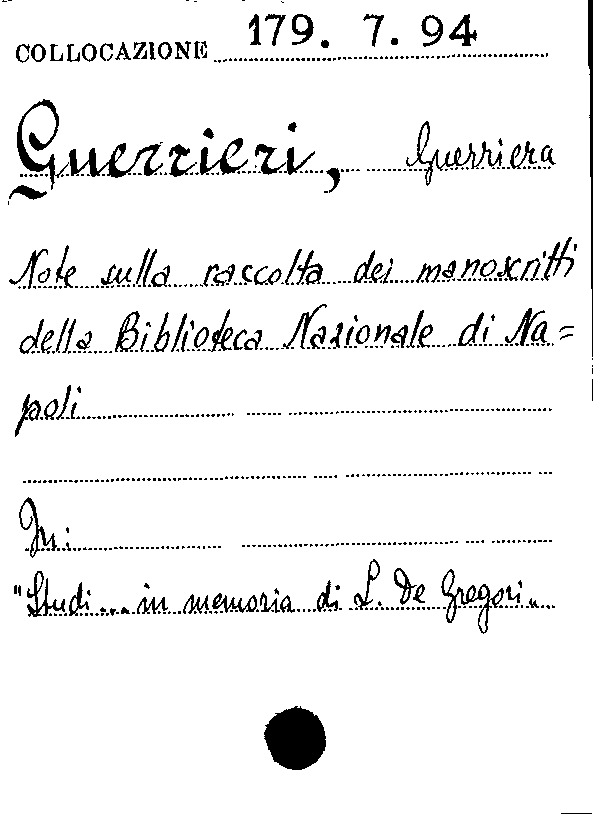 COLLOCAZIONE 179. 7. 94
Guerrieri, Guerriera
Note sulla raccolta dei manoscritti
della Biblioteca Nazionale di Na=
poli
In:
"Studi... in memoria di L. De Gregori".